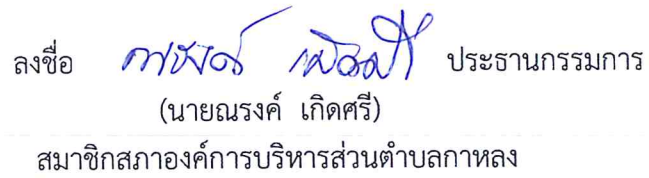 ลงชื่อ ณรงค์ เกิดศรี ประธานกรรมการ
(นายณรงค์ เกิดศรี)
สมาชิกสภาองค์การบริหารส่วนตำบลกาหลง